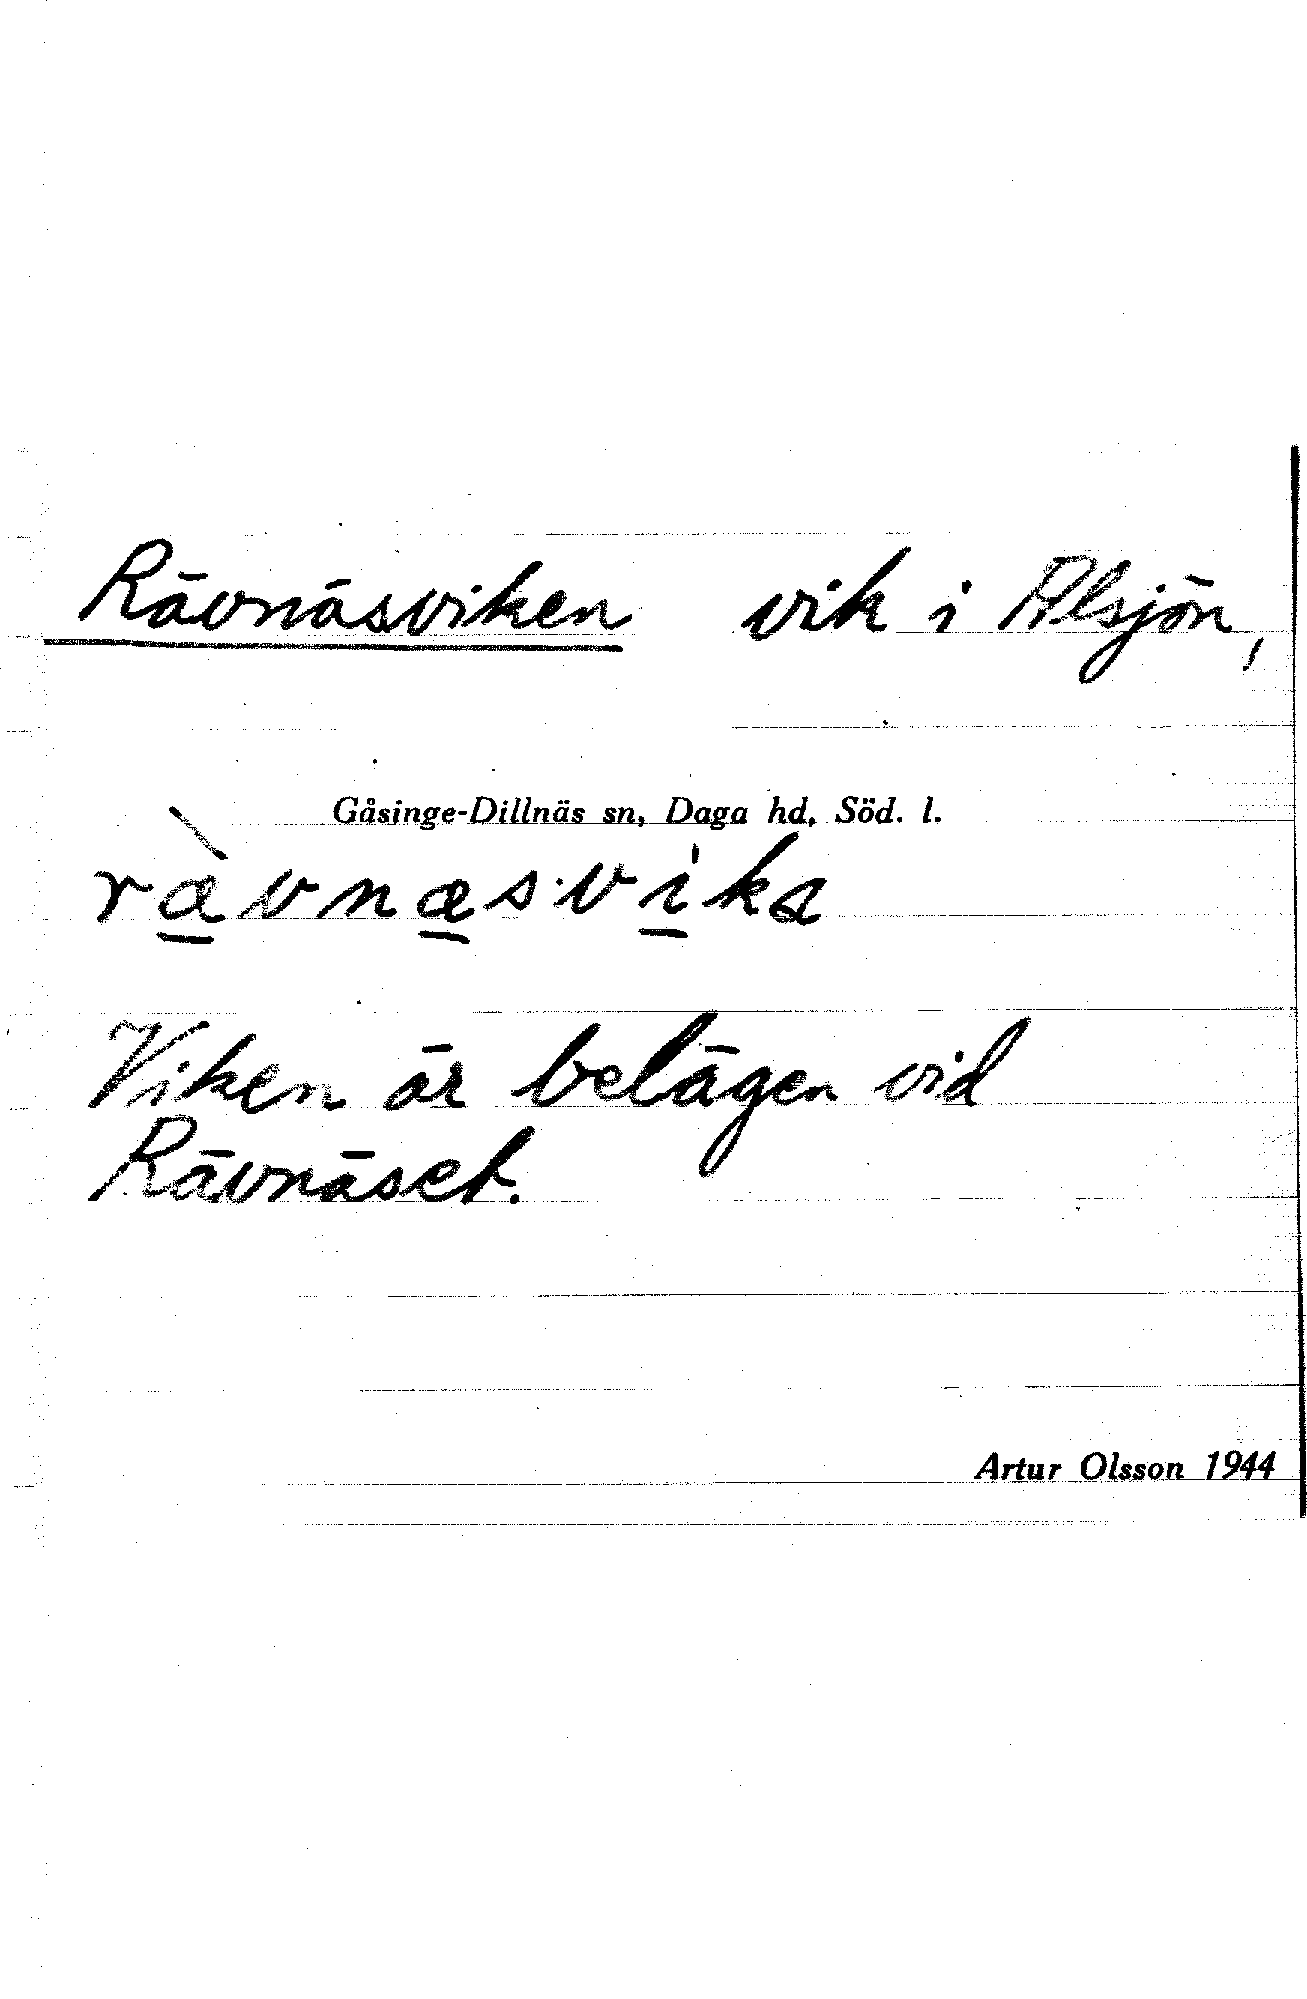 Rävnäsviken vik i Alsjön,
Gåsinge-Dillnäs sn, Daga hd, Söd. l.
ræ̀vnæs·vika
Viken är belägen vid
Rävnäset.
Artur Olsson 1944